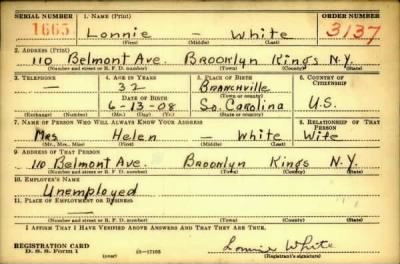 SERIAL NUMBER 1. NAME (Print) ORDER NUMBER
1665 Lonnie - White 3137
(First) (Middle) (Last)
2. ADDRESS (Print)
110 Belmont Ave. Brooklyn Kings N.Y.
(Number and street or R. F. D. number) (Town) (County) (State)
3. TELEPHONE 4. AGE IN YEARS 5. PLACE OF BIRTH 6. COUNTRY OF CITIZENSHIP
— 32 Branchville
DATE OF BIRTH (Town or county)
6-13-08 So. Carolina U.S.
(Exchange) (Number) (Mo.) (Day) (Yr.) (State or country)
7. NAME OF PERSON WHO WILL ALWAYS KNOW YOUR ADDRESS 8. RELATIONSHIP OF THAT PERSON
Mrs Helen - White Wife
(Mr., Mrs., Miss) (First) (Middle) (Last)
9. ADDRESS OF THAT PERSON
110 Belmont Ave. Brooklyn Kings N.Y.
(Number and street or R. F. D. number) (Town) (County) (State)
10. EMPLOYER'S NAME
Unemployed
11. PLACE OF EMPLOYMENT OR BUSINESS
—
(Number and street or R. F. D. number) (Town) (County) (State)
I AFFIRM THAT I HAVE VERIFIED ABOVE ANSWERS AND THAT THEY ARE TRUE.
REGISTRATION CARD Lonnie White
D. S. S. Form 1 (over) (Registrant's signature)